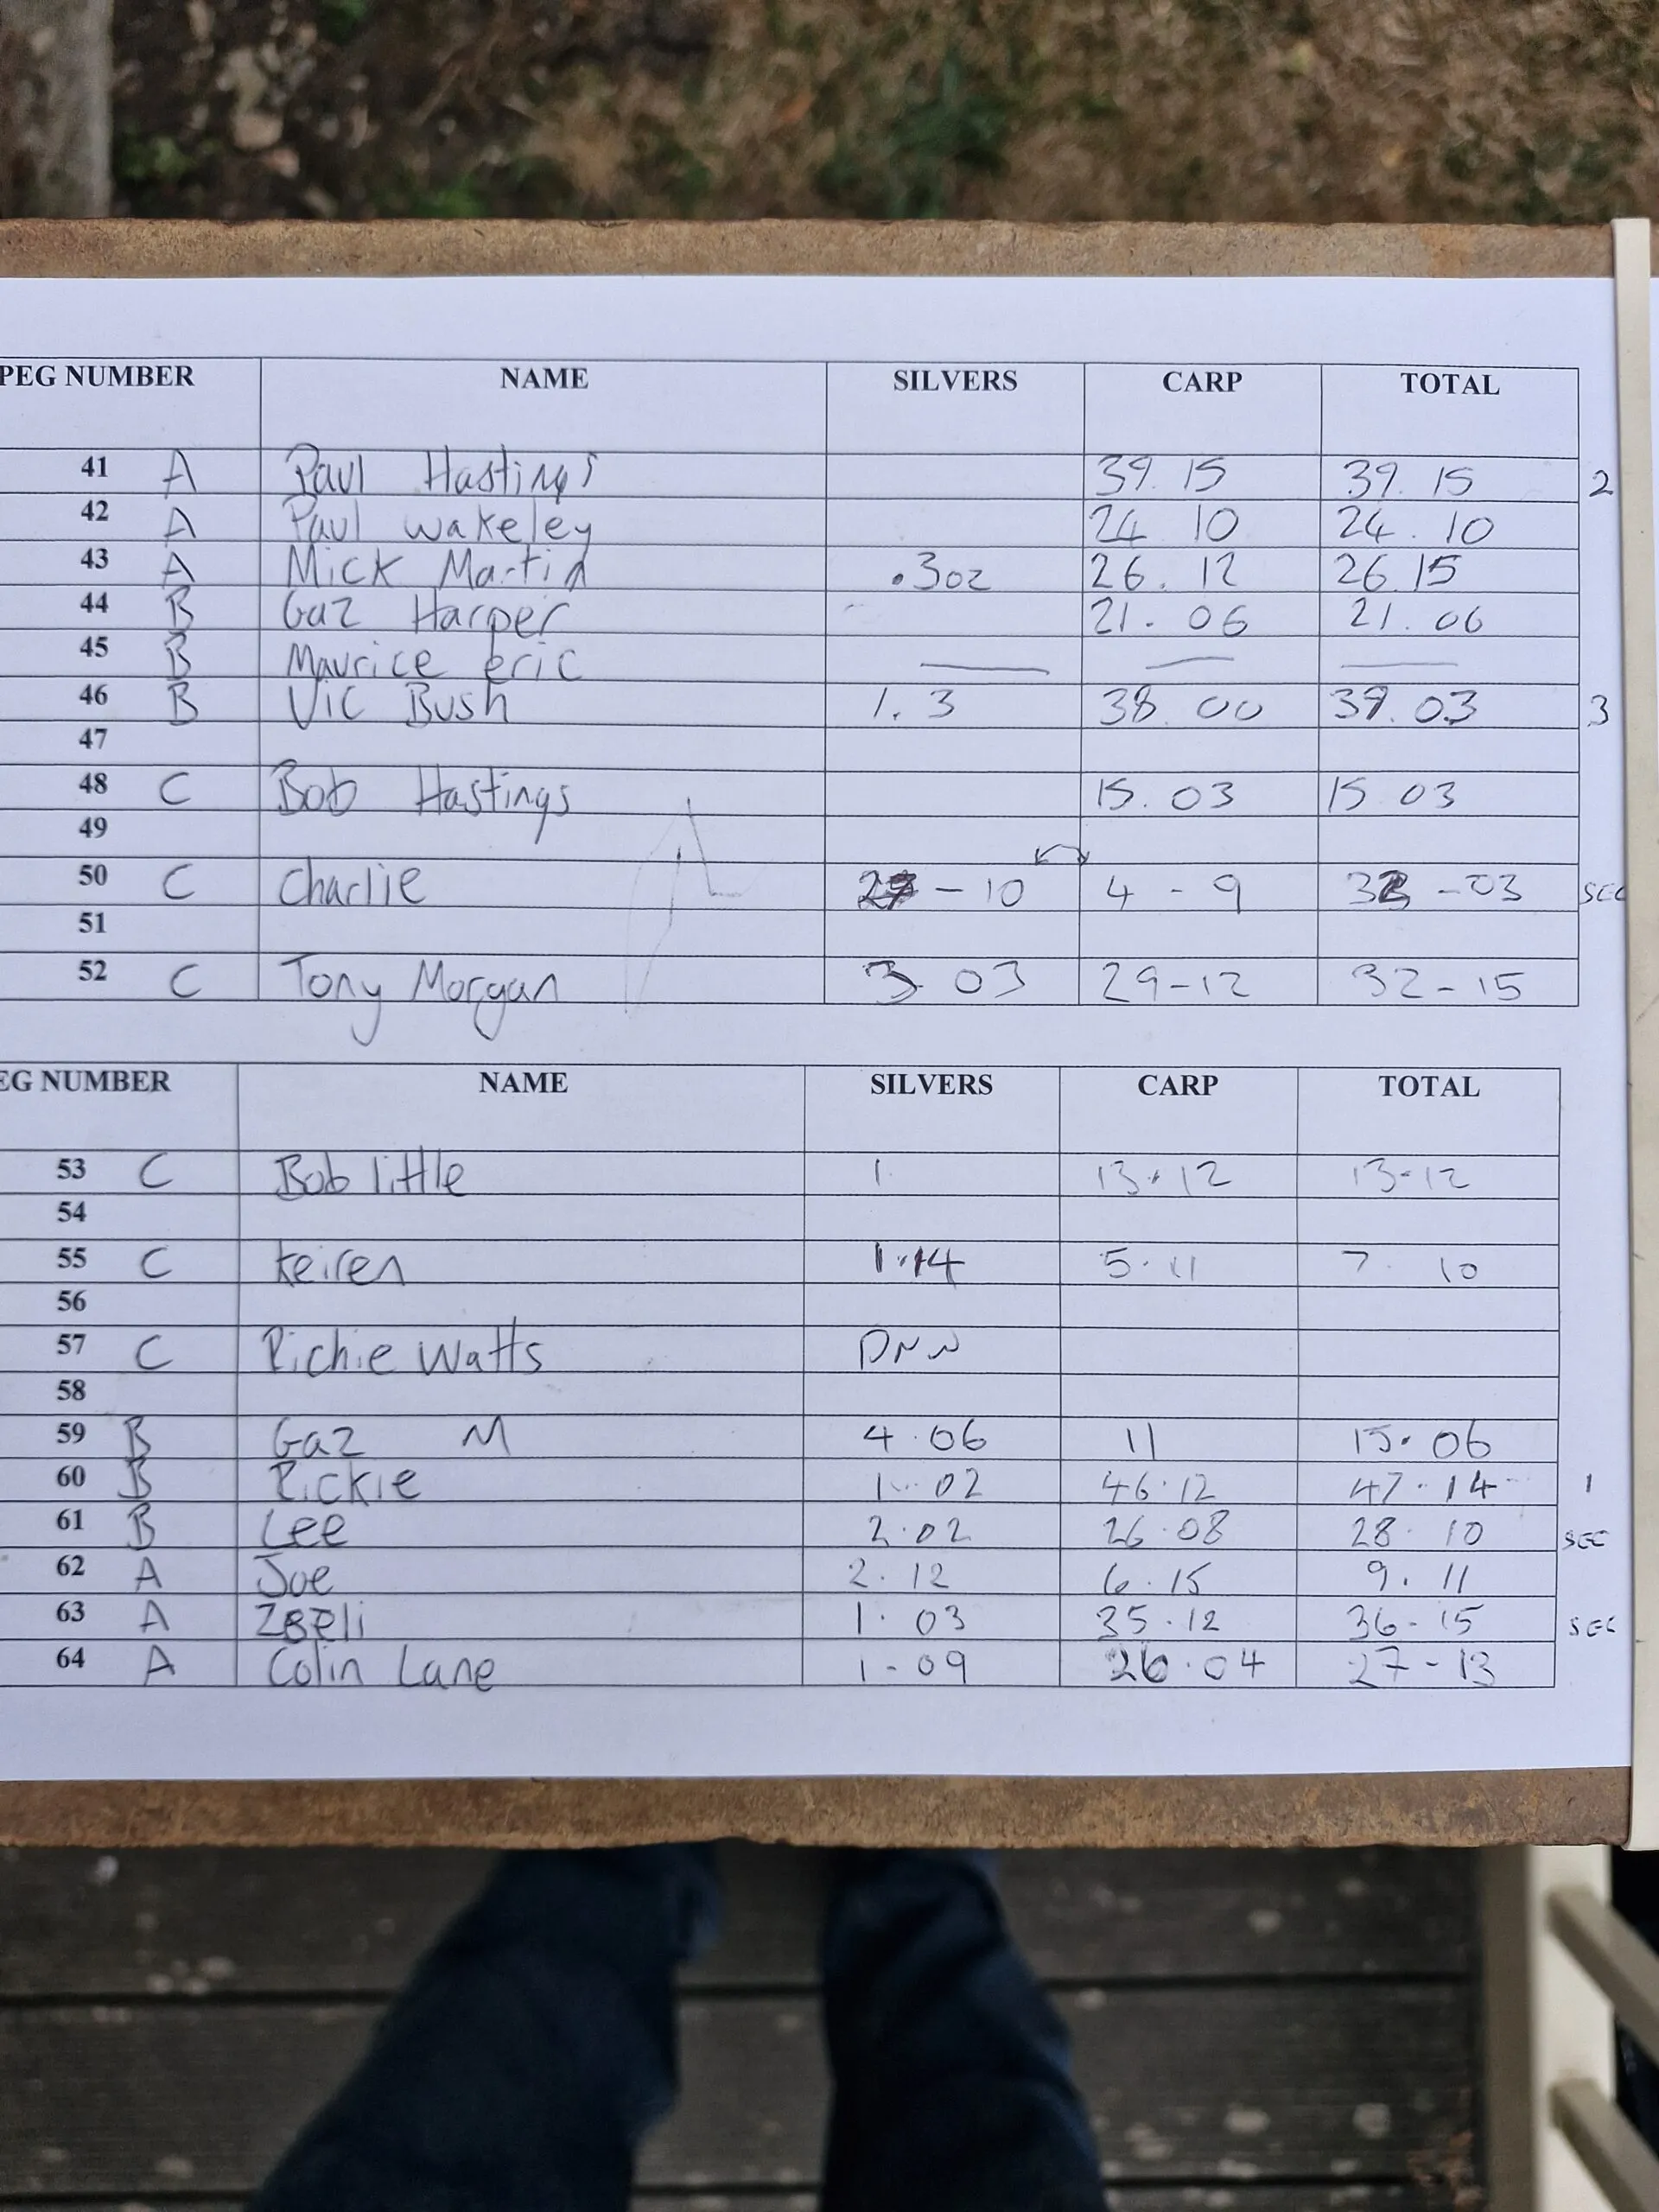 PEG NUMBER NAME SILVERS CARP TOTAL
41 A Paul Hastings 39.15 39.15 2
42 A Paul Wakeley 24 10 24.10
43 A Mick Martin .3oz 26.12 26.15
44 B Gaz Harper 21.06 21.06
45 B Maurice eric — — —
46 B Vic Bush 1.3 38 00 39.03 3
47
48 C Bob Hastings 15.03 15 03
49
50 C Charlie - 10 4 - 9 32 - 03 SEC
51
52 C Tony Morgan 3 03 29-12 32-15
EG NUMBER NAME SILVERS CARP TOTAL
53 C Bob little 13.12 13-12
54
55 C Keiren 1.14 5.11 7 10
56
57 C Richie Watts DNW
58
59 B Gaz M 4.06 11 15.06
60 B Rickie 1.02 46.12 47.14 1
61 B Lee 2.02 26.08 28.10 SEC
62 A Joe 2.12 6.15 9.11
63 A 1.03 35.12 36-15 SEC
64 A Colin Lane 1-09 26.04 27-13